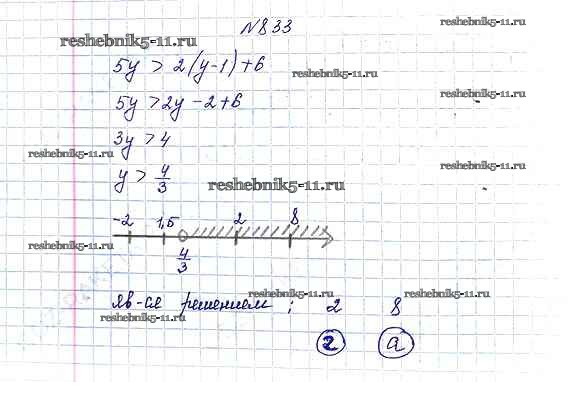 №833
reshebnik5-11.ru
5y > 2(y-1)+6
reshebnik5-11.ru
5y > 2y - 2 + 6
reshebnik5-11.ru
3y > 4
reshebnik5-11.ru
reshebnik5-11.ru
y > 4/3
reshebnik5-11.ru
-2 1,5 2 8
reshebnik5-11.ru
reshebnik5-11.ru
4/3
яв-ся решением: 2 8
reshebnik5-11.ru
reshebnik5-11.ru
reshebnik5-11.ru
г а